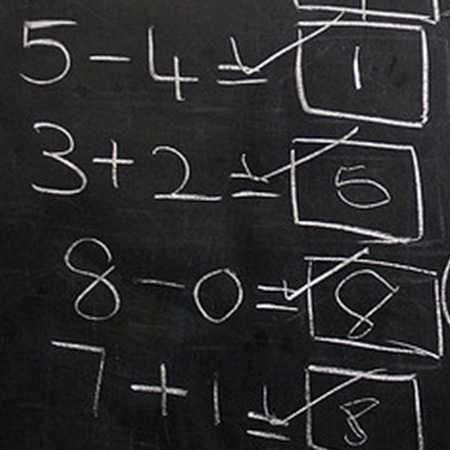 5 - 4 = 1
3 + 2 = 5
8 - 0 = 8
7 + 1 = 8